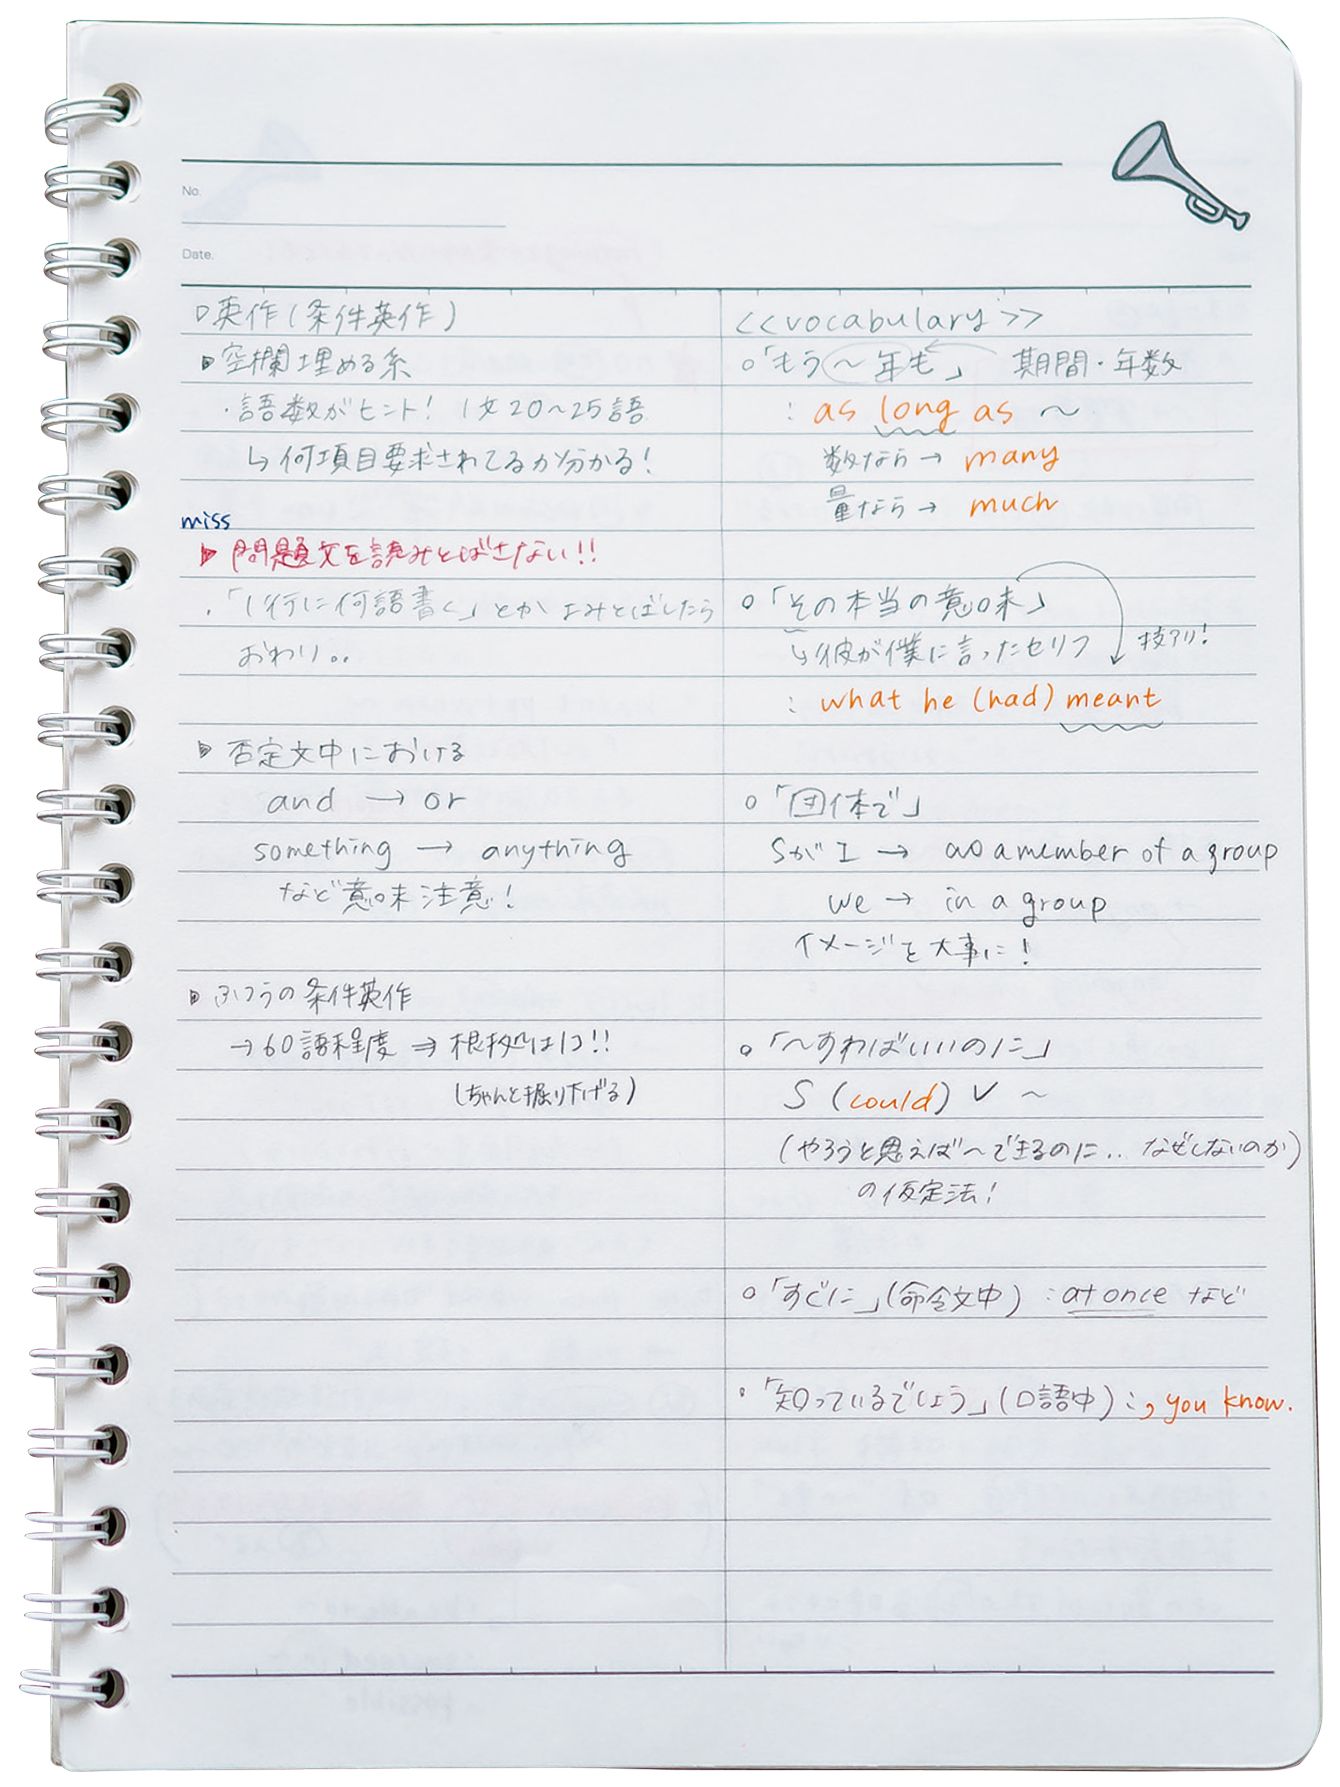 No.
Date.
英作(条件英作)
空欄埋める系
・語数がヒント! 1文20〜25語
↳何項目要求されてるか分かる!
miss
問題文を読みとばさない!!
・「1行に何語書く」とかよみとばしたら
おわり。。
否定文中における
and → or
something → anything
など意味注意!
ふつうの条件英作
→60語程度 ⇒ 根拠は1コ!!
(ちゃんと掘り下げる)
<<vocabulary>>
○「もう〜年も」 期間・年数
: as long as 〜
数なら→ many
量なら→ much
○「その本当の意味」
↳彼が僕に言ったセリフ 技アリ!
: what he (had) meant
○「団体で」
SがI → as a member of a group
we → in a group
イメージを大事に!
○「〜すればいいのに」
S (could) V 〜
(やろうと思えば〜できるのに.. なぜしないのか)
の仮定法!
○「すぐに」(命令文中) : at once など
・「知っているでしょう」(口語中) : , you know.